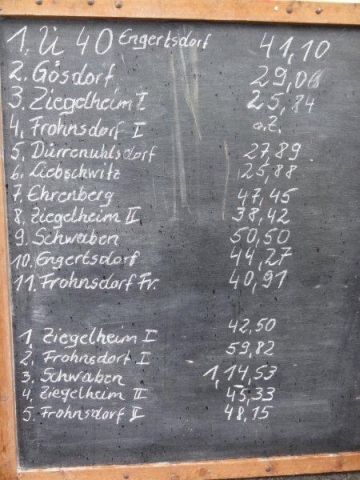 1. Ü 40 Engertsdorf 41,10
2. Gösdorf 29,06
3. Ziegelheim I 25,84
4. Frohnsdorf I o.Z.
5. Dürrenuhlsdorf 27,89
6. Liebschwitz 25,88
7. Ehrenberg 47,45
8. Ziegelheim II 38,42
9. Schwaben 50,50
10. Engertsdorf 44,27
11. Frohnsdorf Fr. 40,91
1. Ziegelheim I 42,50
2. Frohnsdorf I 59,82
3. Schwaben 1,14,53
4. Ziegelheim II 45,33
5. Frohnsdorf II 48,15